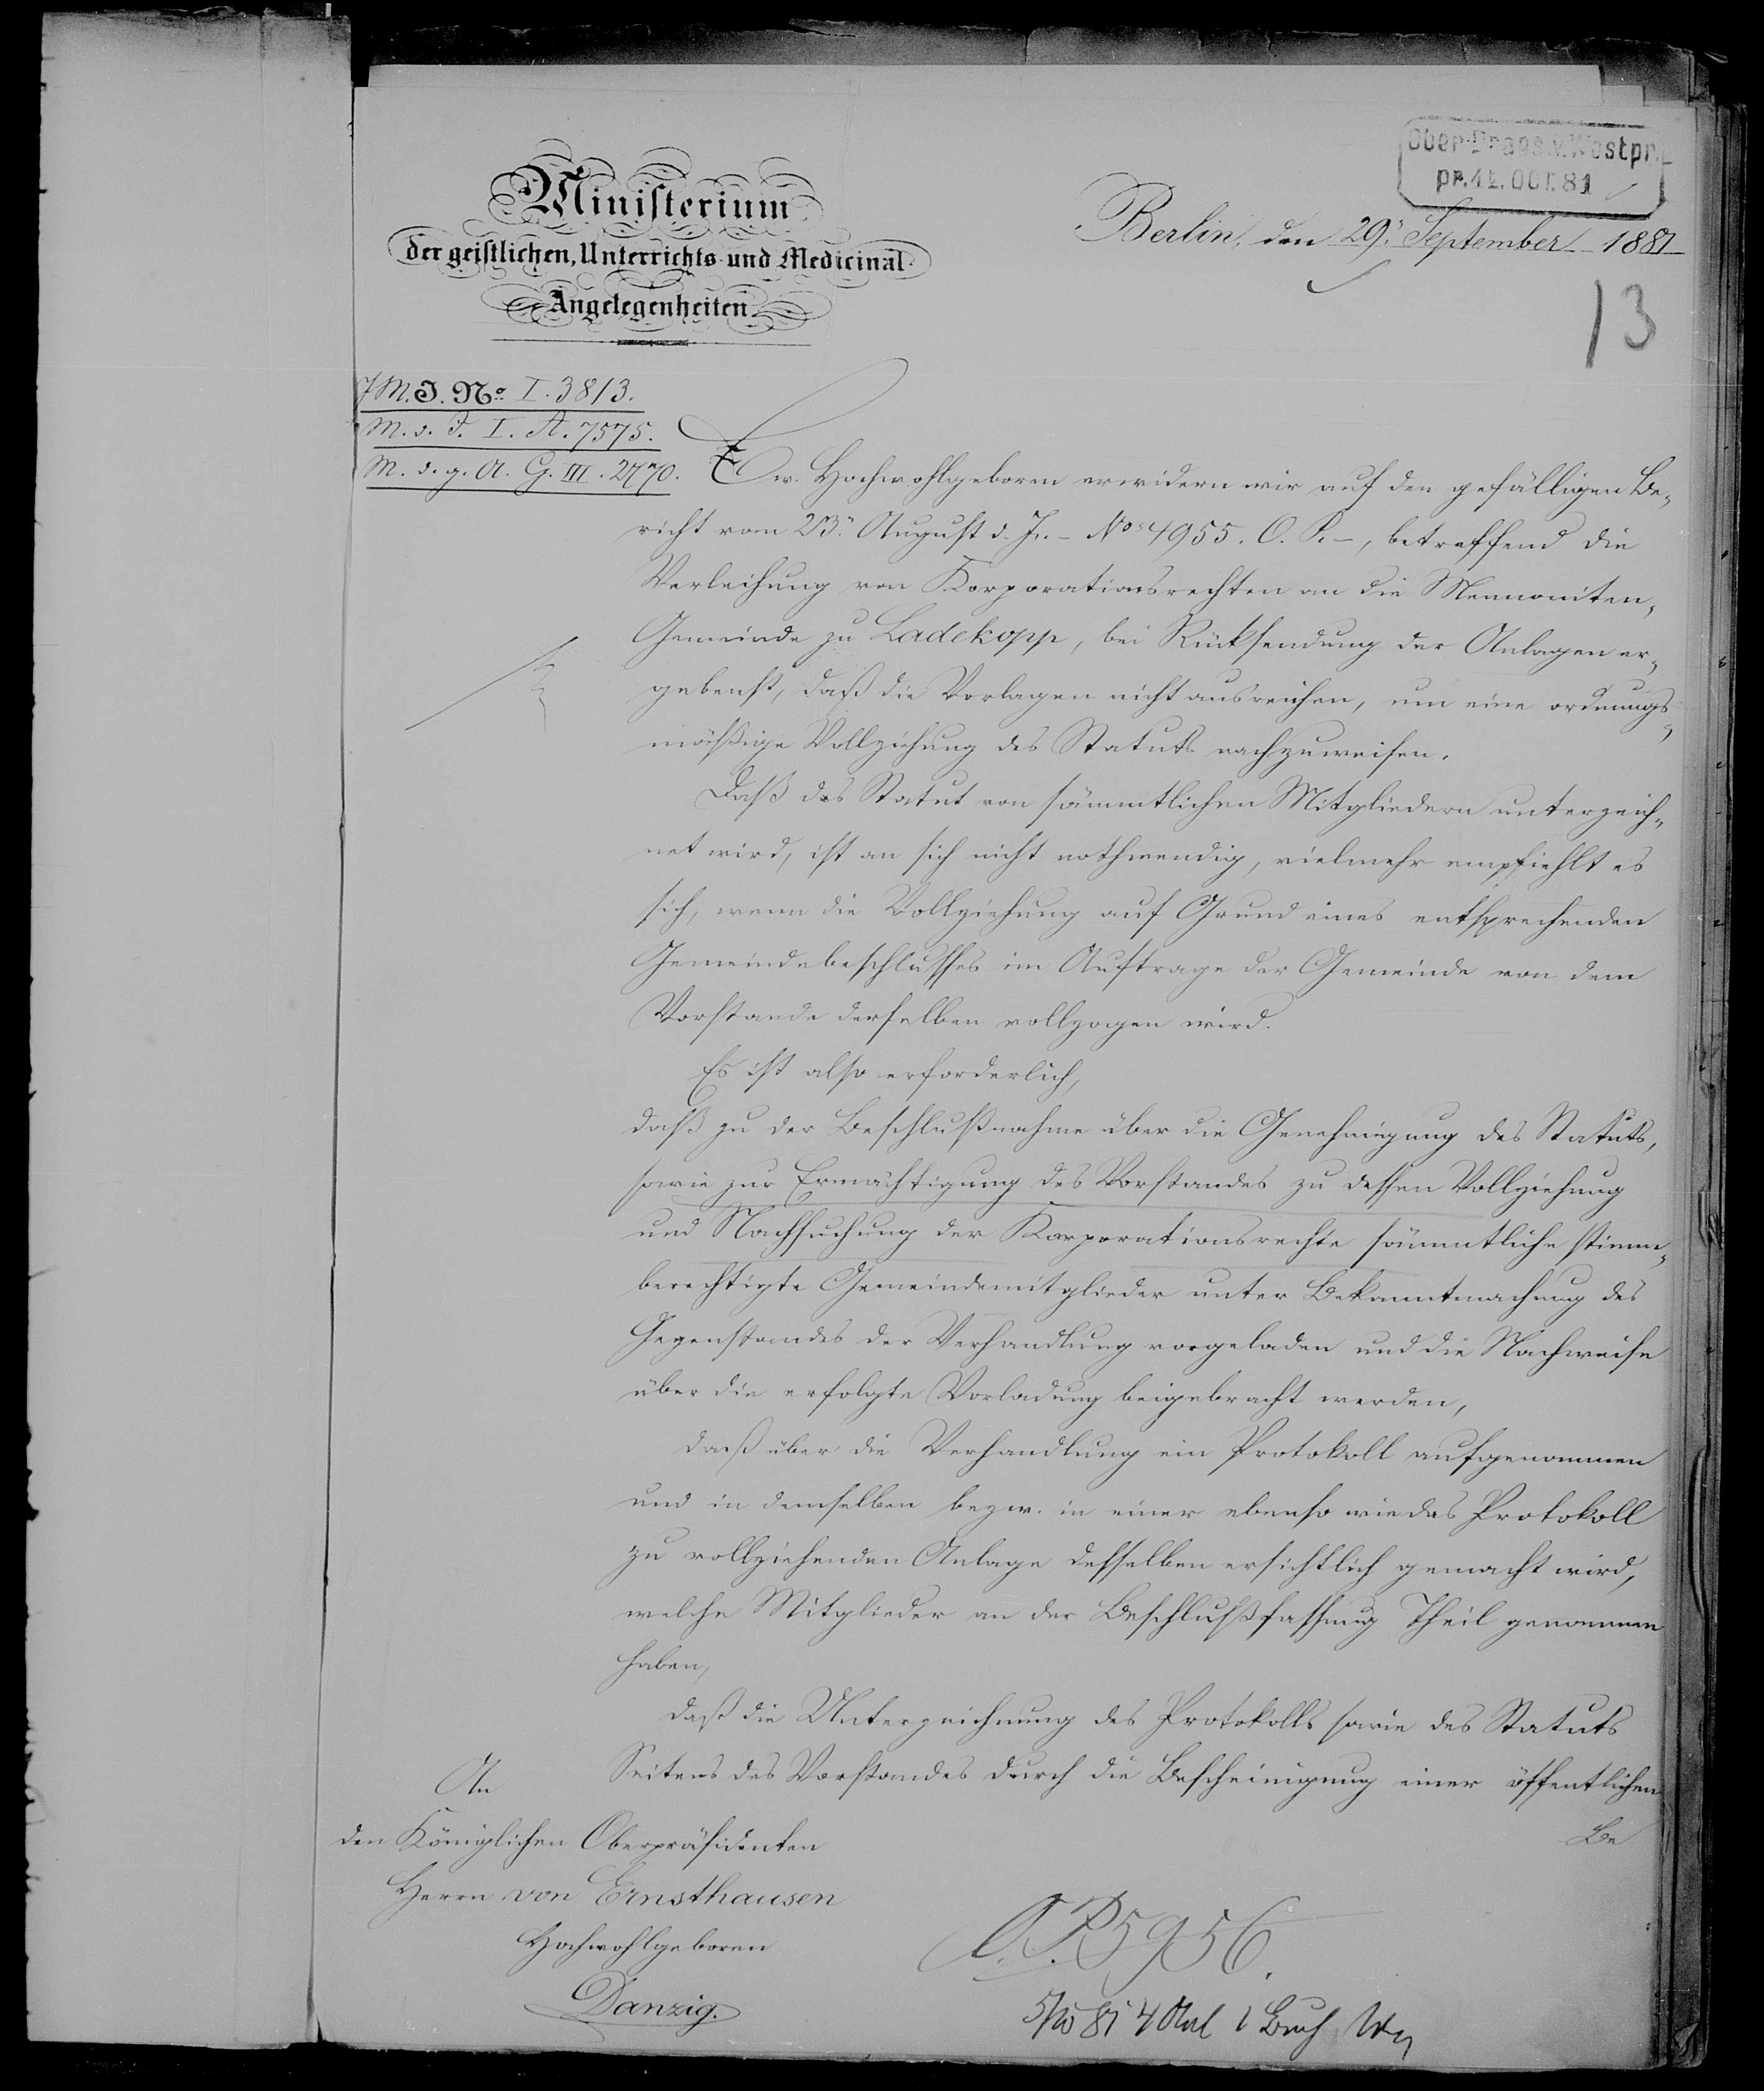 Ober-Praes. v. Westpr.
pr. 4. OCT. 81
Ministerium
der geistlichen, Unterrichts- und Medicinal-
Angelegenheiten.
Berlin, den 29. September 1881
13
J. M. J. No. I. 3813.
M. d. J. I. A. 7575.
M. d. g. A. G. III. 2770.
Ew. Hochwohlgeboren erwidern wir auf den gefälligen Be-
richt vom 23. August d. Js. - No. 4955. O. P. -, betreffend die
Verleihung von Korporationsrechten an die Mennoniten-
Gemeinde zu Ladekopp, bei Rücksendung der Anlagen er-
gebenst, daß die Vorlagen nicht ausreichen, um eine ordnungs-
mäßige Vollziehung des Statuts nachzuweisen.
Daß das Statut von sämmtlichen Mitgliedern unterzeich-
net wird, ist an sich nicht nothwendig, vielmehr empfiehlt es
sich, wenn die Vollziehung auf Grund eines entsprechenden
Gemeindebeschlusses im Auftrage der Gemeinde von dem
Vorstande derselben vollzogen wird.
Es ist also erforderlich,
daß zu der Beschlußnahme über die Genehmigung des Statuts,
sowie zur Ermächtigung des Vorstandes zu dessen Vollziehung
und Nachsuchung der Korporationsrechte sämmtliche stimm-
berechtigte Gemeindemitglieder unter Bekanntmachung des
Gegenstandes der Verhandlung vorgeladen und die Nachweise
über die erfolgte Vorladung beigebracht werden,
daß über die Verhandlung ein Protokoll aufgenommen
und in demselben bezw. in einer ebenso wie das Protokoll
zu vollziehenden Anlage desselben ersichtlich gemacht wird,
welche Mitglieder an der Beschlußfassung Theil genommen
haben,
daß die Unterzeichnung des Protokolls sowie des Statuts
Seitens des Vorstandes durch die Bescheinigung einer öffentlichen
Be
An
den Königlichen Oberpräsidenten
Herrn von Ernsthausen
Hochwohlgeboren
Danzig.
O. P. 5956.
5/10 81 4 Anl 1 Buch